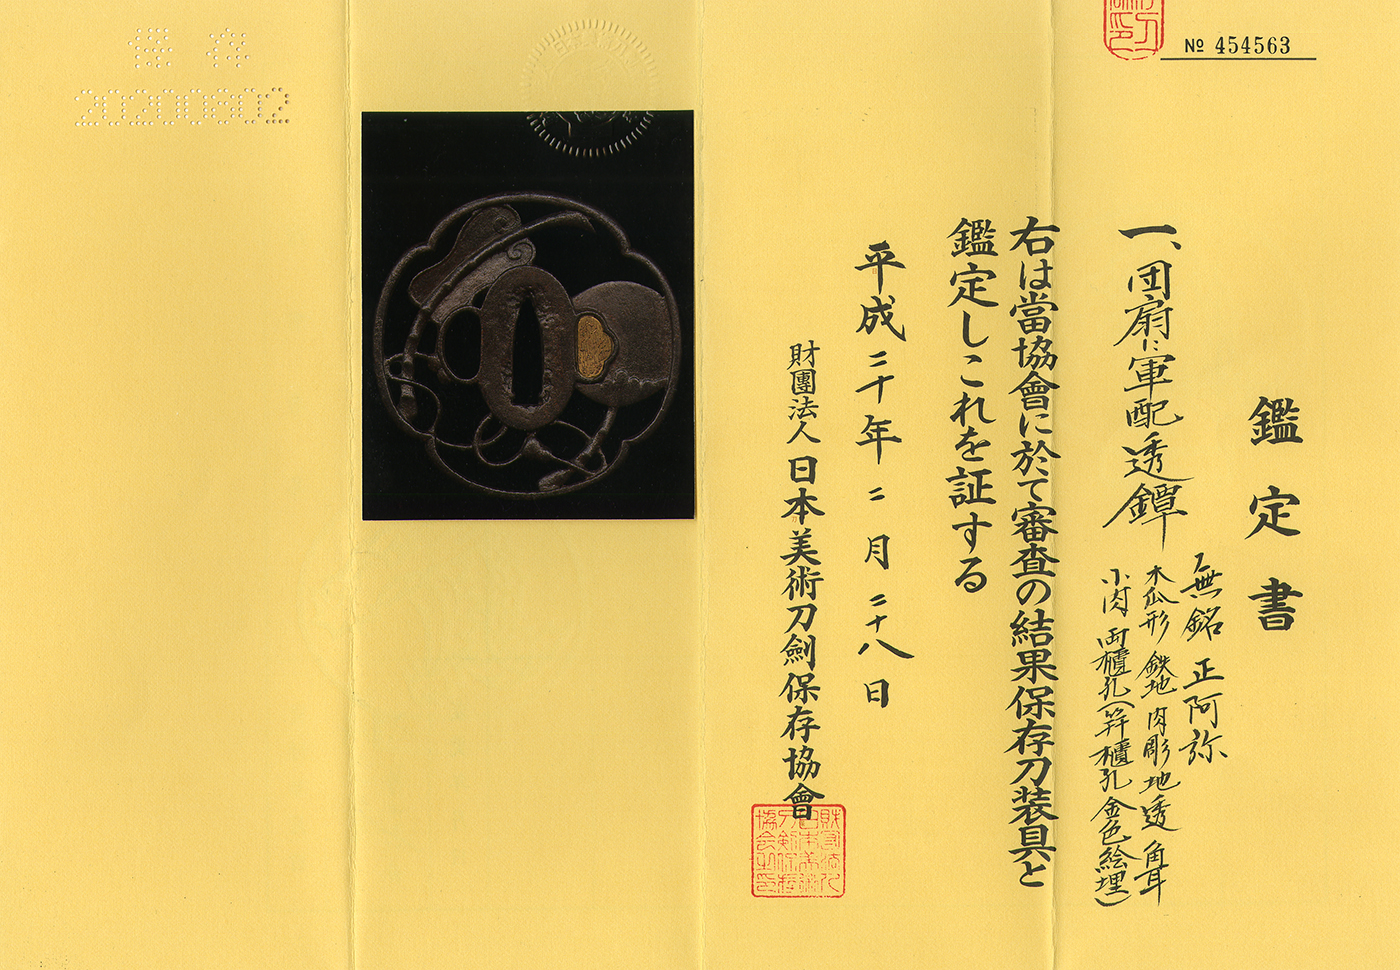 No 454563
鑑定書
一、団扇に軍配透鐔
無銘 正阿弥
木瓜形 鉄地 肉彫地透 角耳
小肉 両櫃孔(笄櫃孔 金色絵埋)
右は當協會に於て審査の結果保存刀装具と
鑑定しこれを証する
平成二十年二月二十八日
財團法人日本美術刀劍保存協會
保存
20200802